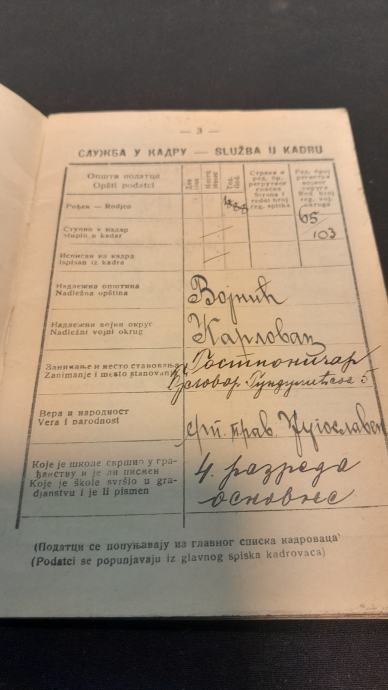 — 3 —
СЛУЖБА У КАДРУ — SLUŽBA U KADRU
Општи податци
Opšti podatci
Дан
Dan
Месец
Mesec
Год.
God.
Страна и
ред. бр.
регрутног
списка
Strana i
redni broj
reg. spiska
Ред. број
регистра
војног
округа
Red. broj
reg. voj.
okruga
Рођен — Rodjen
65
103
Ступио у кадар
Stupio u kadar
Исписан из кадра
Ispisan iz kadra
Надлежна општина
Nadležna opština
Војнић
Надлежни војни округ
Nadležni vojni okrug
Карловац
Занимање и место становања
Zanimanje i mesto stanovanja
Гостионичар
Гундулићева 5
Вера и народност
Vera i narodnost
срп. прав. Југославен
Које је школе свршио у гра-
ђанству и је ли писмен
Koje je škole svršio u gra-
djanstvu i je li pismen
4. разреда
основне
(Податци се попуњавају из главног списка кадроваца)
(Podatci se popunjavaju iz glavnog spiska kadrovaca)